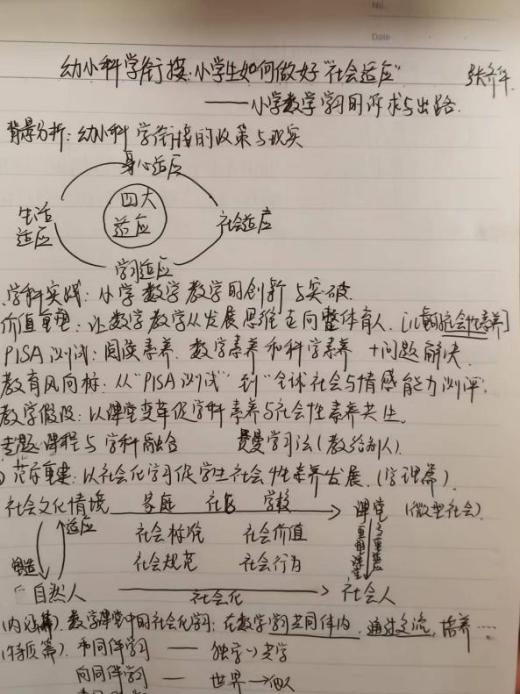 No.
Date
幼小科学衔接：小学生如何做好“社会适应” 张齐华
——小学数学学习的诉求与出路.
背景分析：幼小科学衔接的政策与现实
身心适应
四大
生活 适应 社会适应
适应
学习适应
学科实践：小学数学教学的创新与突破.
价值重塑：让数学教学从发展思维走向整体育人.
PISA测试：阅读素养. 数学素养和科学素养 +问题解决.
教育风向标：从“PISA测试”到“全球社会与情感能力测评.
教学假设：以课堂变革促学科素养与社会性素养共生.
专题课程与学科融合 费曼学习法(教给别人).
范式重建：以社会化学习促学生社会性素养发展.(学理篇).
社会文化情境 家庭 社区 学校 课堂 (微型社会)
适应 社会标准 社会价值
塑造 社会规范 社会行为
自然人 社会化 社会人
数学课堂中的社会化学习：在数学学习共同体内. 通过交流, 培养……
(特质篇). 和同伴学习 —— 独学→共学
向同伴学习 —— 世界→他人